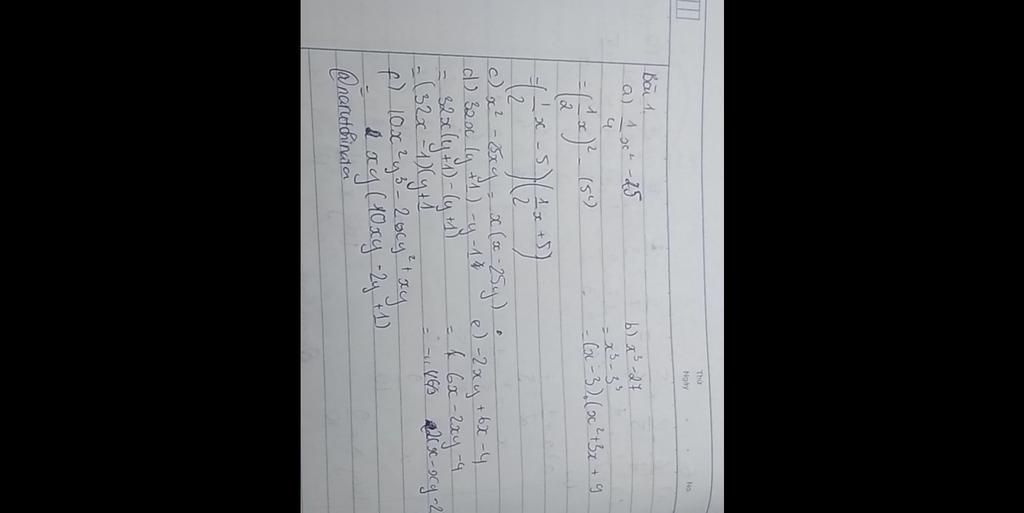 Thứ
Ngày No
Bài 1.
a) 1/4 x² - 25
= (1/2 x)² - (5²)
= (1/2 x - 5)(1/2 x + 5)
b) x³ - 27
= x³ - 3³
= (x - 3).(x² + 3x + 9
c) x² - 25xy = x(x - 25y)
d) 32x(y + 1) - y - 1
= 32x(y+1) - (y+1)
= (32x - 1)(y+1
e) -2xy + 6x - 4
= 6x - 2xy - 4
= 2(x - xy - 2
f) 10x²y³ - 2xy² + xy
= xy(10xy - 2y + 1)
@narutohinata